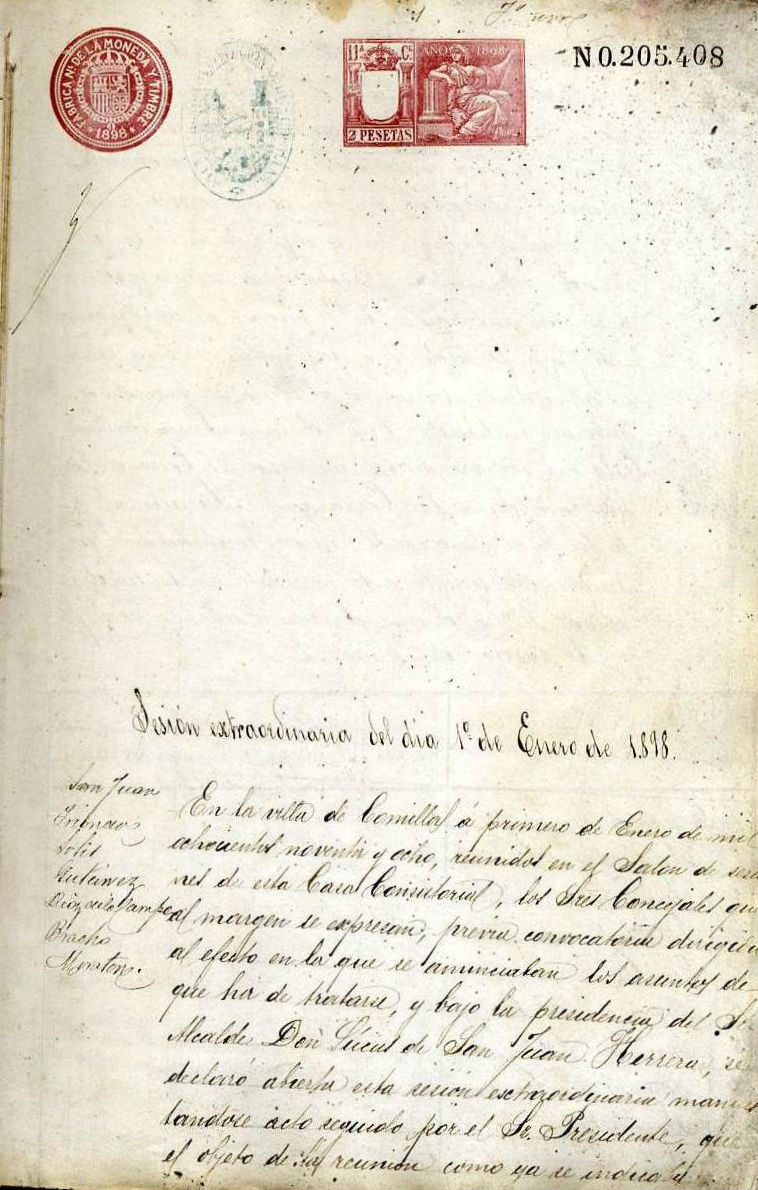 FÁBRICA Nª DE LA MONEDA Y TIMBRE
* 1898 *
11ª Cª
AÑO DE 1898
2 PESETAS
N 0.205.408
Sesión extraordinaria del dia 1º de Enero de 1898.
San Juan
Solis
Gutierrez
Diaz de la Campa
Bracho
En la villa de Comillas á primero de Enero de mil
ochocientos noventa y ocho, reunidos en el Salon de sesio
nes de esta Casa Consistorial, los Sres Concejales que
al margen se expresan, previa convocatoria dirigida
al efecto en la que se anunciaban los asuntos de
que ha de tratarse, y bajo la presidencia del Sr
Alcalde Don Lúcas de San Juan Herrera, se
declaró abierta esta sesión extraordinaria manifes
tandose acto seguido por el Sr. Presidente, que
el objeto de la reunion como ya se indicaba